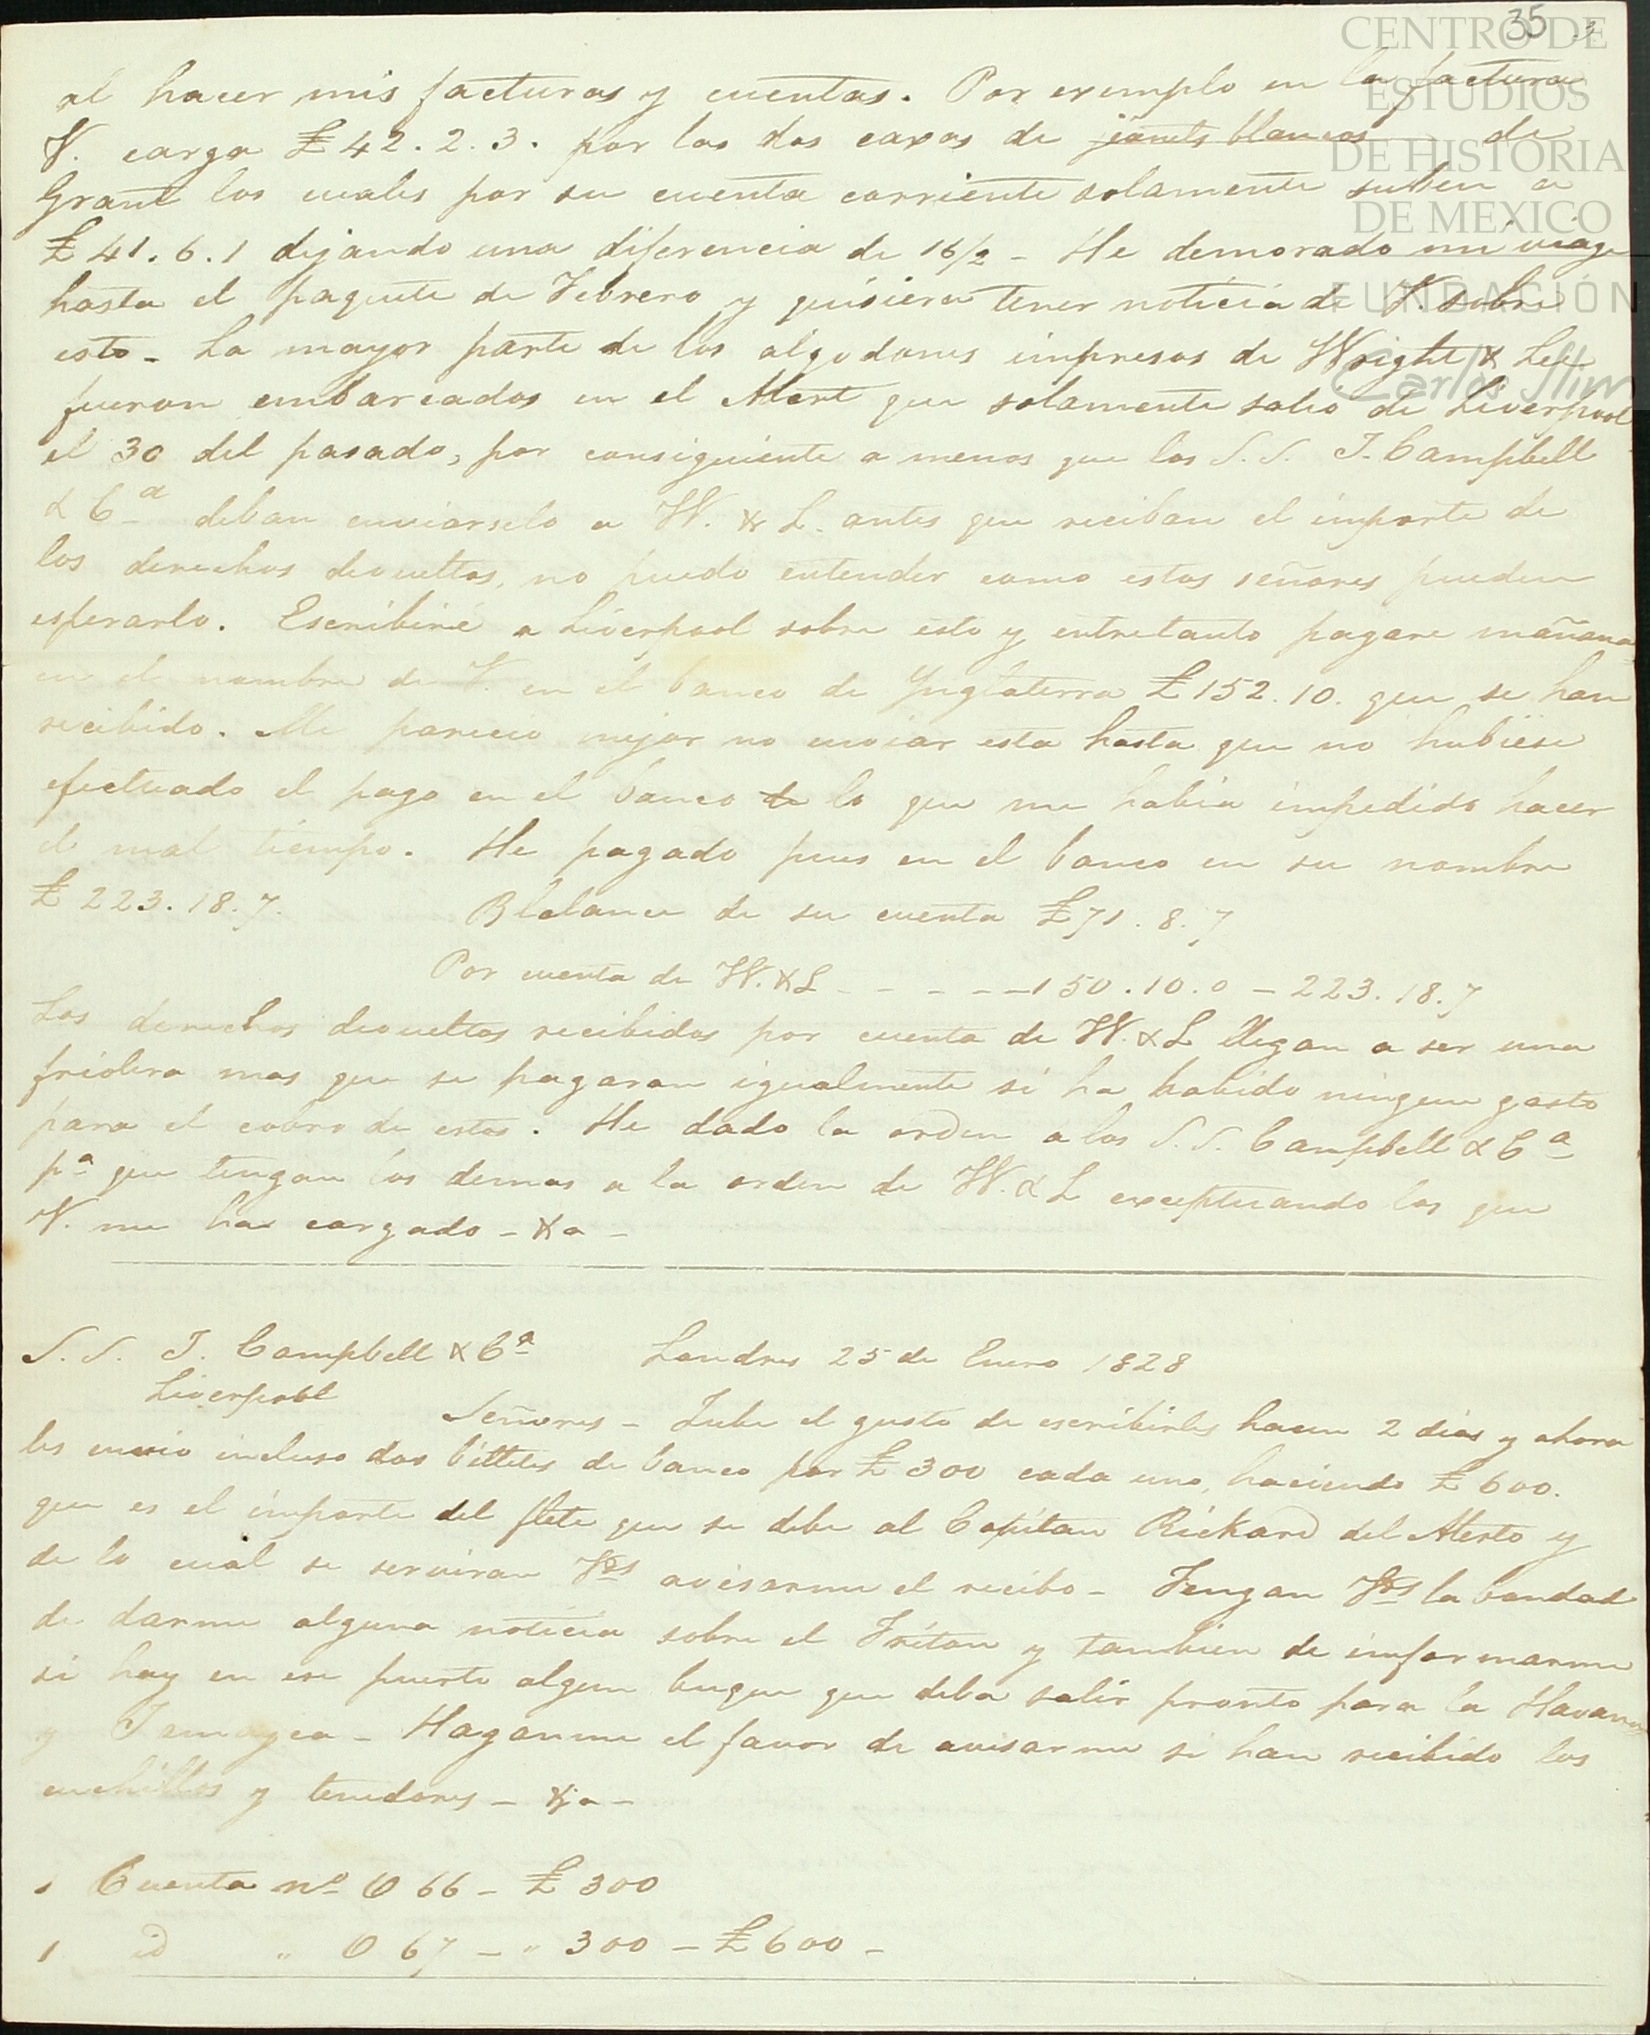 35 3
CENTRO DE
ESTUDIOS
DE HISTORIA
DE MEXICO
FUNDACIÓN
Carlos Slim
al hacer mis facturas y cuentas. Por exemplo en la factura
V. carga £ 42. 2. 3. por las dos caxas de jeanets blancos de
Grant los cuales por su cuenta corriente solamente suben a
£ 41. 6. 1 dejando una diferencia de 16/2 - He demorado mi viage
hasta el paquete de Febrero y quisiera tener noticia de V. sobre
esto - La mayor parte de los algodones impresos de Wright & Lee
fueron embarcados en el Alert que solamente salio de Liverpool
el 30 del pasado, por consiguiente a menos que los S.S. J. Campbell
& Cª deban enviarselo a W. & L. antes que reciban el importe de
los derechos devueltos, no puedo entender como estos señores pueden
esperarlo. Escribiré a Liverpool sobre esto y entretanto pagare mañana
en el nombre de V. en el banco de Ynglaterra £ 152. 10. que se han
recibido. Me parecio mejor no enviar esta hasta que no hubiese
efectuado el pago en el banco lo que me habia impedido hacer
el mal tiempo. He pagado pues en el banco en su nombre
£ 223. 18. 7. Blalance de su cuenta £ 71. 8. 7
Por cuenta de W. & L - - - - - 150. 10. 0 - 223. 18. 7
Los derechos devueltos recibidos por cuenta de W. & L llegan a ser una
friolera mas que se pagaran igualmente si ha habido ningun gasto
para el cobro de estos. He dado la orden a los S.S. Campbell & Cª
pª que tengan los demas a la orden de W. & L exceptuando los que
V. me ha cargado - &a -
S.S. J. Campbell & Cª Londres 25 de Enero 1828
Liverpool
Señores - Tube el gusto de escribirles hacen 2 dias y ahora
les envio incluso dos billetes de banco por £ 300 cada uno, haciendo £ 600.
que es el importe del flete que se debe al Capitan Rickard del Alerto y
de lo cual se serviran Vds avisarme el recibo - Tengan Vds la bondad
de darme alguna noticia sobre el Triton y tambien de informarme
si hay en ese puerto algun buque que deba salir pronto para la Havana
y Jamayca - Haganme el favor de avisarme si han recibido los
cuchillos y tenedores - &a -
1 Cuenta nº O 66 - £ 300
1 id " O 67 - " 300 - £ 600 -